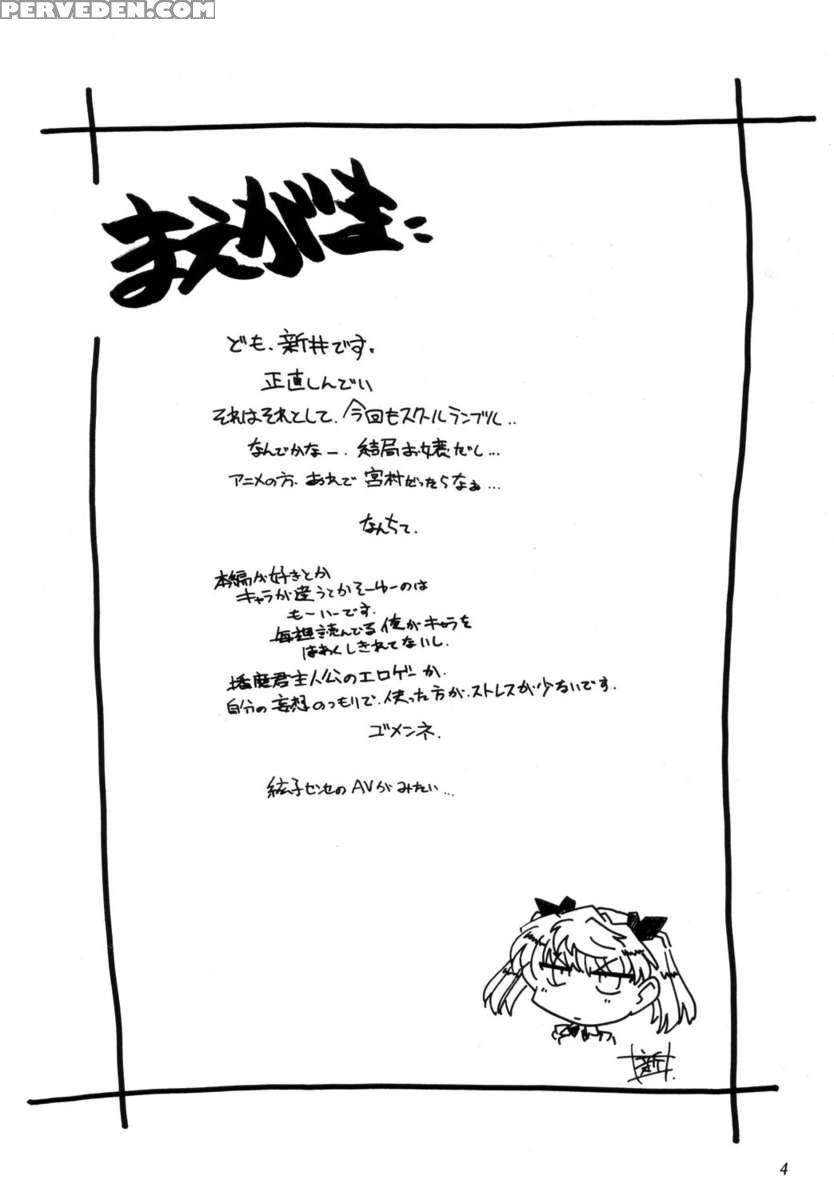 PERVEDEN.COM
まえがき:
ども、新井です。
正直しんでい
それはそれとして、今回もスクールランブル..
なんでかなー、結局お嬢だし...
アニメの方、あれで宮村だったらなぁ...
なんちて、
本編が好きとか
キャラが違うとかそーゆーのは
もーいーです.
毎週読んでる俺がキャラを
はあくしきれてないし.
播磨君主人公のエロゲーか、
自分の妄想のつもりで、使った方が、ストレスが少ないです.
ゴメンネ.
絃子センセのAVがみたい...
新
4